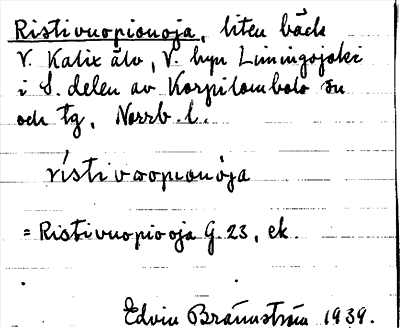 Ristivuopionoja, liten bäck
V. Kalix älv, V. byn Liminigojoki
i S. delen av Korpilombolo sn
och tg, Norrb. l.
rísti vᴔopion òja
= Ristivuopiooja G. 23, ek.
Edvin Brännström 1939.